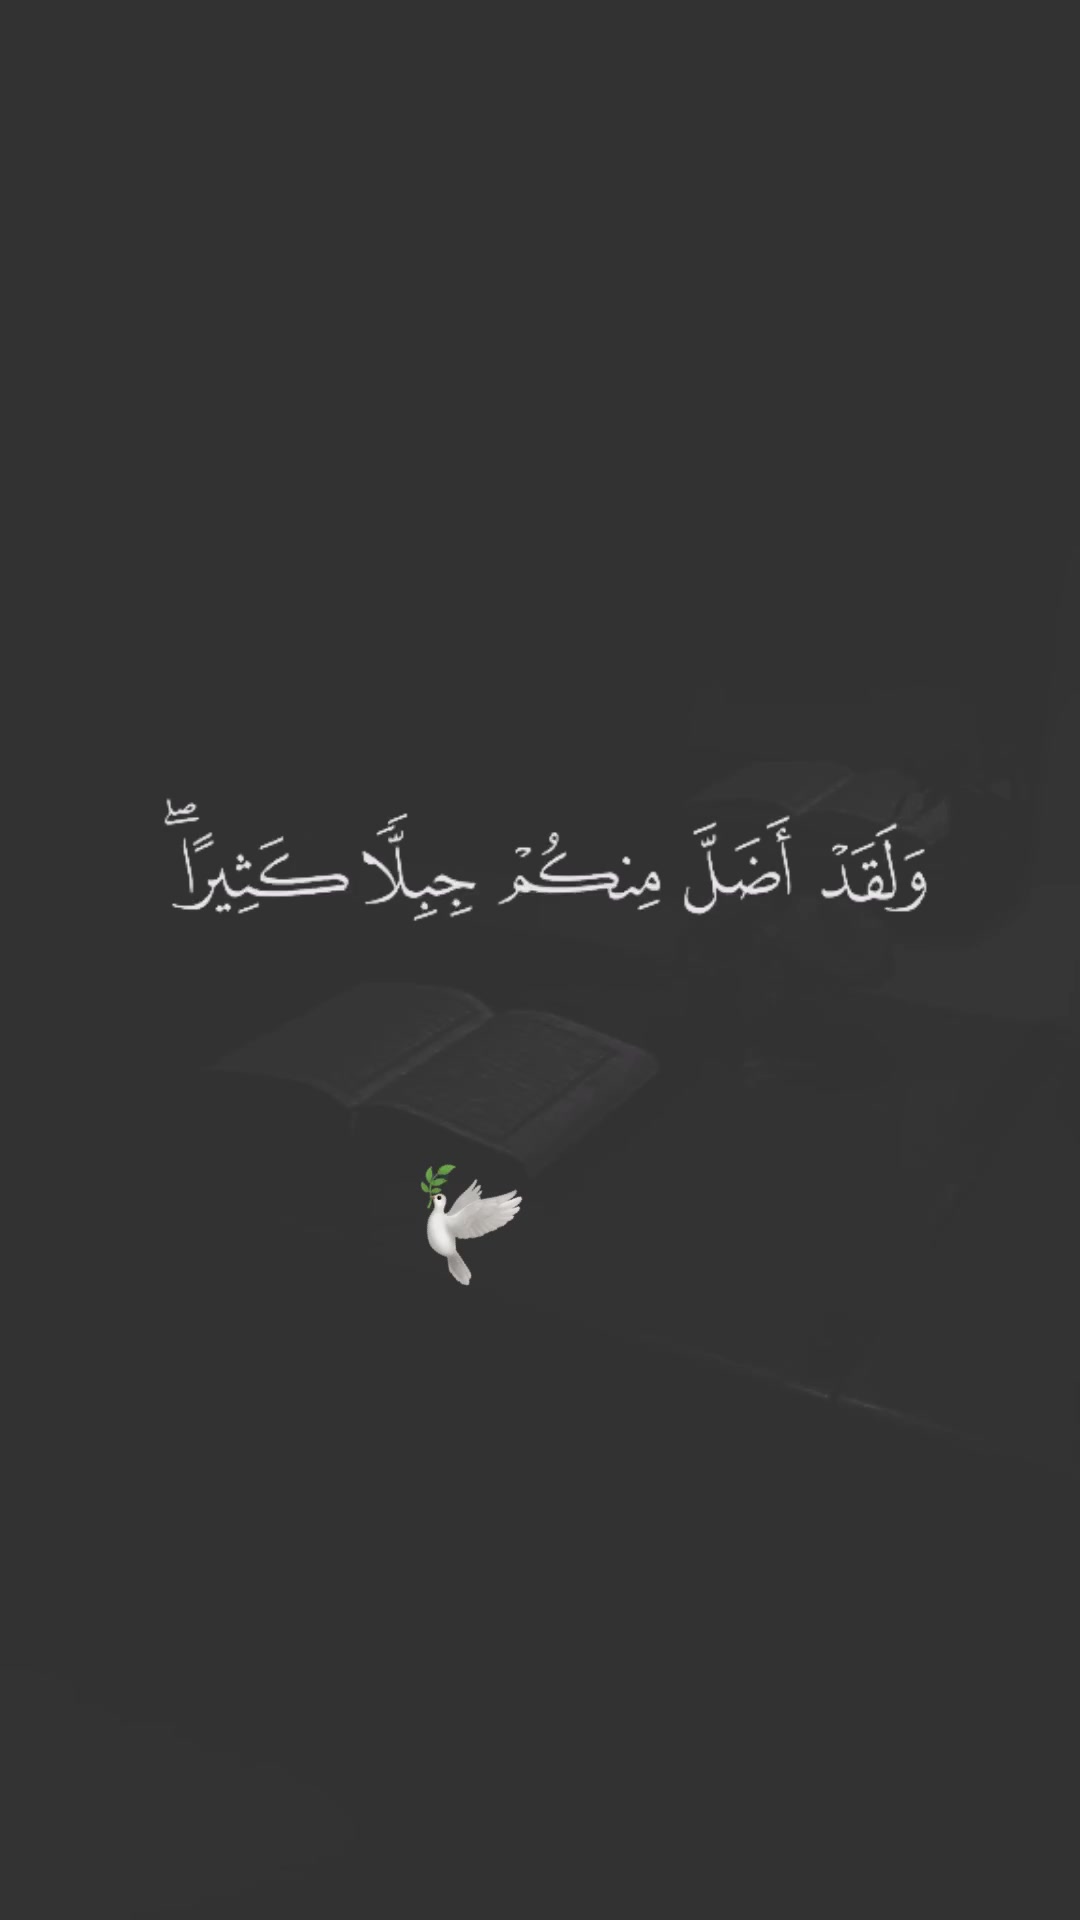 وَلَقَدۡ أَضَلَّ مِنكُمۡ جِبِلّٗا كَثِيرًاۖ